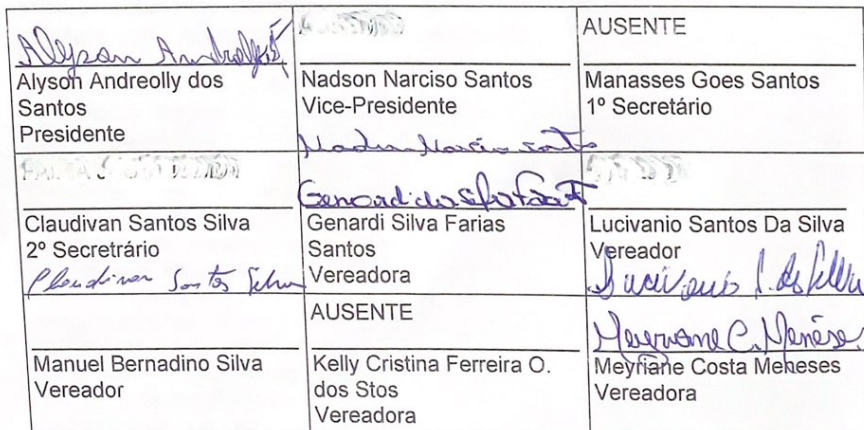 Alyson Andreolly
Alyson Andreolly dos
Santos
Presidente
Nadson Narciso Santos
Vice-Presidente
Nadson Narciso Santos
AUSENTE
Manasses Goes Santos
1º Secretário
Claudivan Santos Silva
2º Secretrário
Claudivan Santos Silva
Genardi Silva Farias
Santos
Vereadora
Lucivanio Santos Da Silva
Vereador
Lucivanio S. da Silva
Manuel Bernadino Silva
Vereador
AUSENTE
Kelly Cristina Ferreira O.
dos Stos
Vereadora
Meyriane C. Meneses
Meyriane Costa Meneses
Vereadora